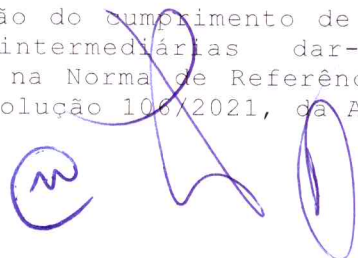 ão do cumprimento de
intermediárias dar-
na Norma de Referênc
olução 106/2021, da A